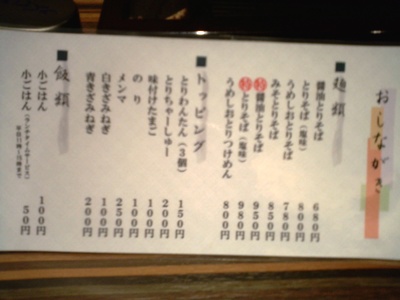 おしながき
■麺類
醤油とりそば 680円
とりそば（塩味） 800円
うめしおとりそば 780円
みそとりそば 850円
醤油とりそば 950円
とりそば（塩味） 980円
うめしおとりつけめん 800円
■トッピング
とりわんたん（3個） 150円
とりちゃーしゅー 200円
味付けたまご 100円
のり 100円
メンマ 250円
白きざみねぎ 100円
青きざみねぎ 200円
■飯類
小ごはん 100円
小ごはん 50円